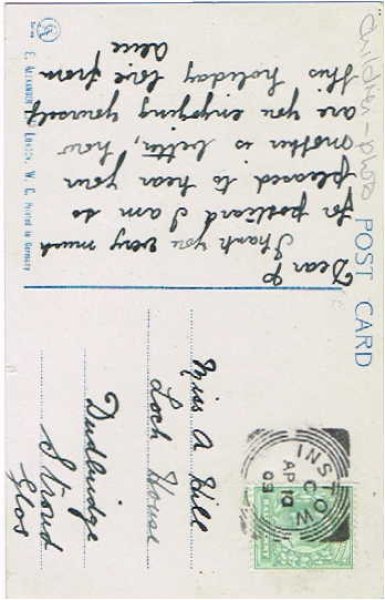 POST CARD
children - photo
Dear P
Thank you very much
for postcard I am so
pleased to hear your
mother is better, how
are you enjoying yourself
this holiday love from
Alice
Miss A Hill
Loch House
Dudbridge
Stroud
Glos
INSTOW
C
AP 10
03
LONDON, W. C. Printed in Germany